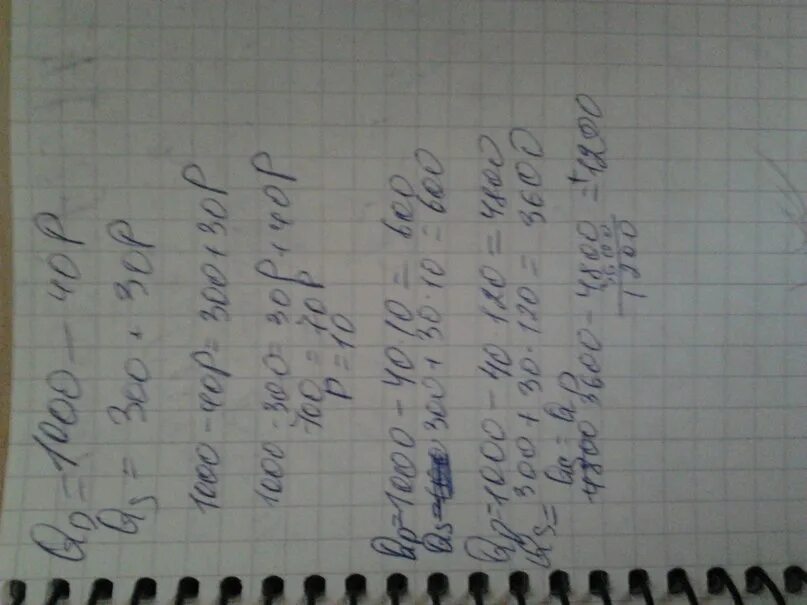 QD = 1000 - 40P
QS = 300 + 30P
1000 - 40P = 300 + 30P
1000 - 300 = 30P + 40P
700 = 70P
P = 10
QD = 1000 - 40·10 = 600
QS = 300 + 30·10 = 600
QD = 1000 - 40·120 = 4800
QS = 300 + 30·120 = 3600
4800 3600 - 4800 = 1200
3600
1200